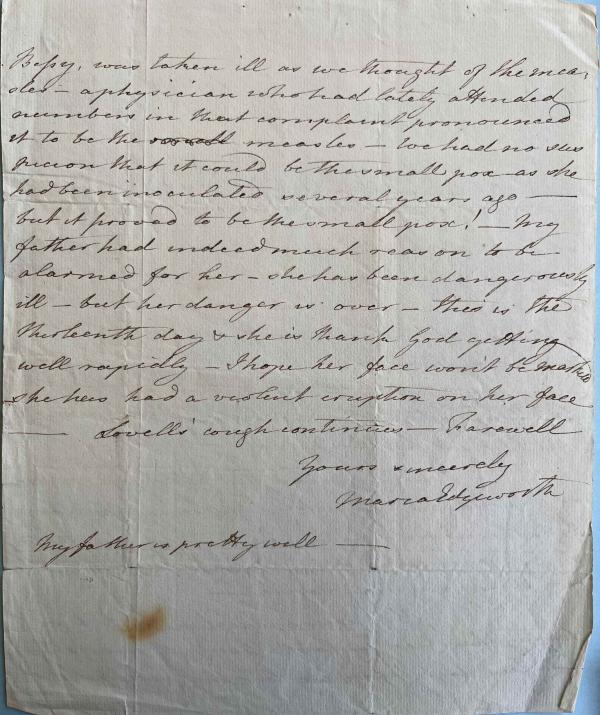 Bessy, was taken ill as we thought of the mea-
sles – a physician who had lately attended
numbers in that complaint pronounced
it to be the measles – we had no sus
picion that it could be the small pox – as she
had been inoculated several years ago —
but it proved to be the small pox! – My
father had indeed much reason to be
alarmed for her – she has been dangerously
ill – but her danger is over – this is the
thirteenth day & she is thank God getting
well rapidly – I hope her face won't be marked
she has had a violent eruption on her face
— Lovell's cough continues – Farewell
Yours sincerely
Maria Edgeworth
My father is pretty well —